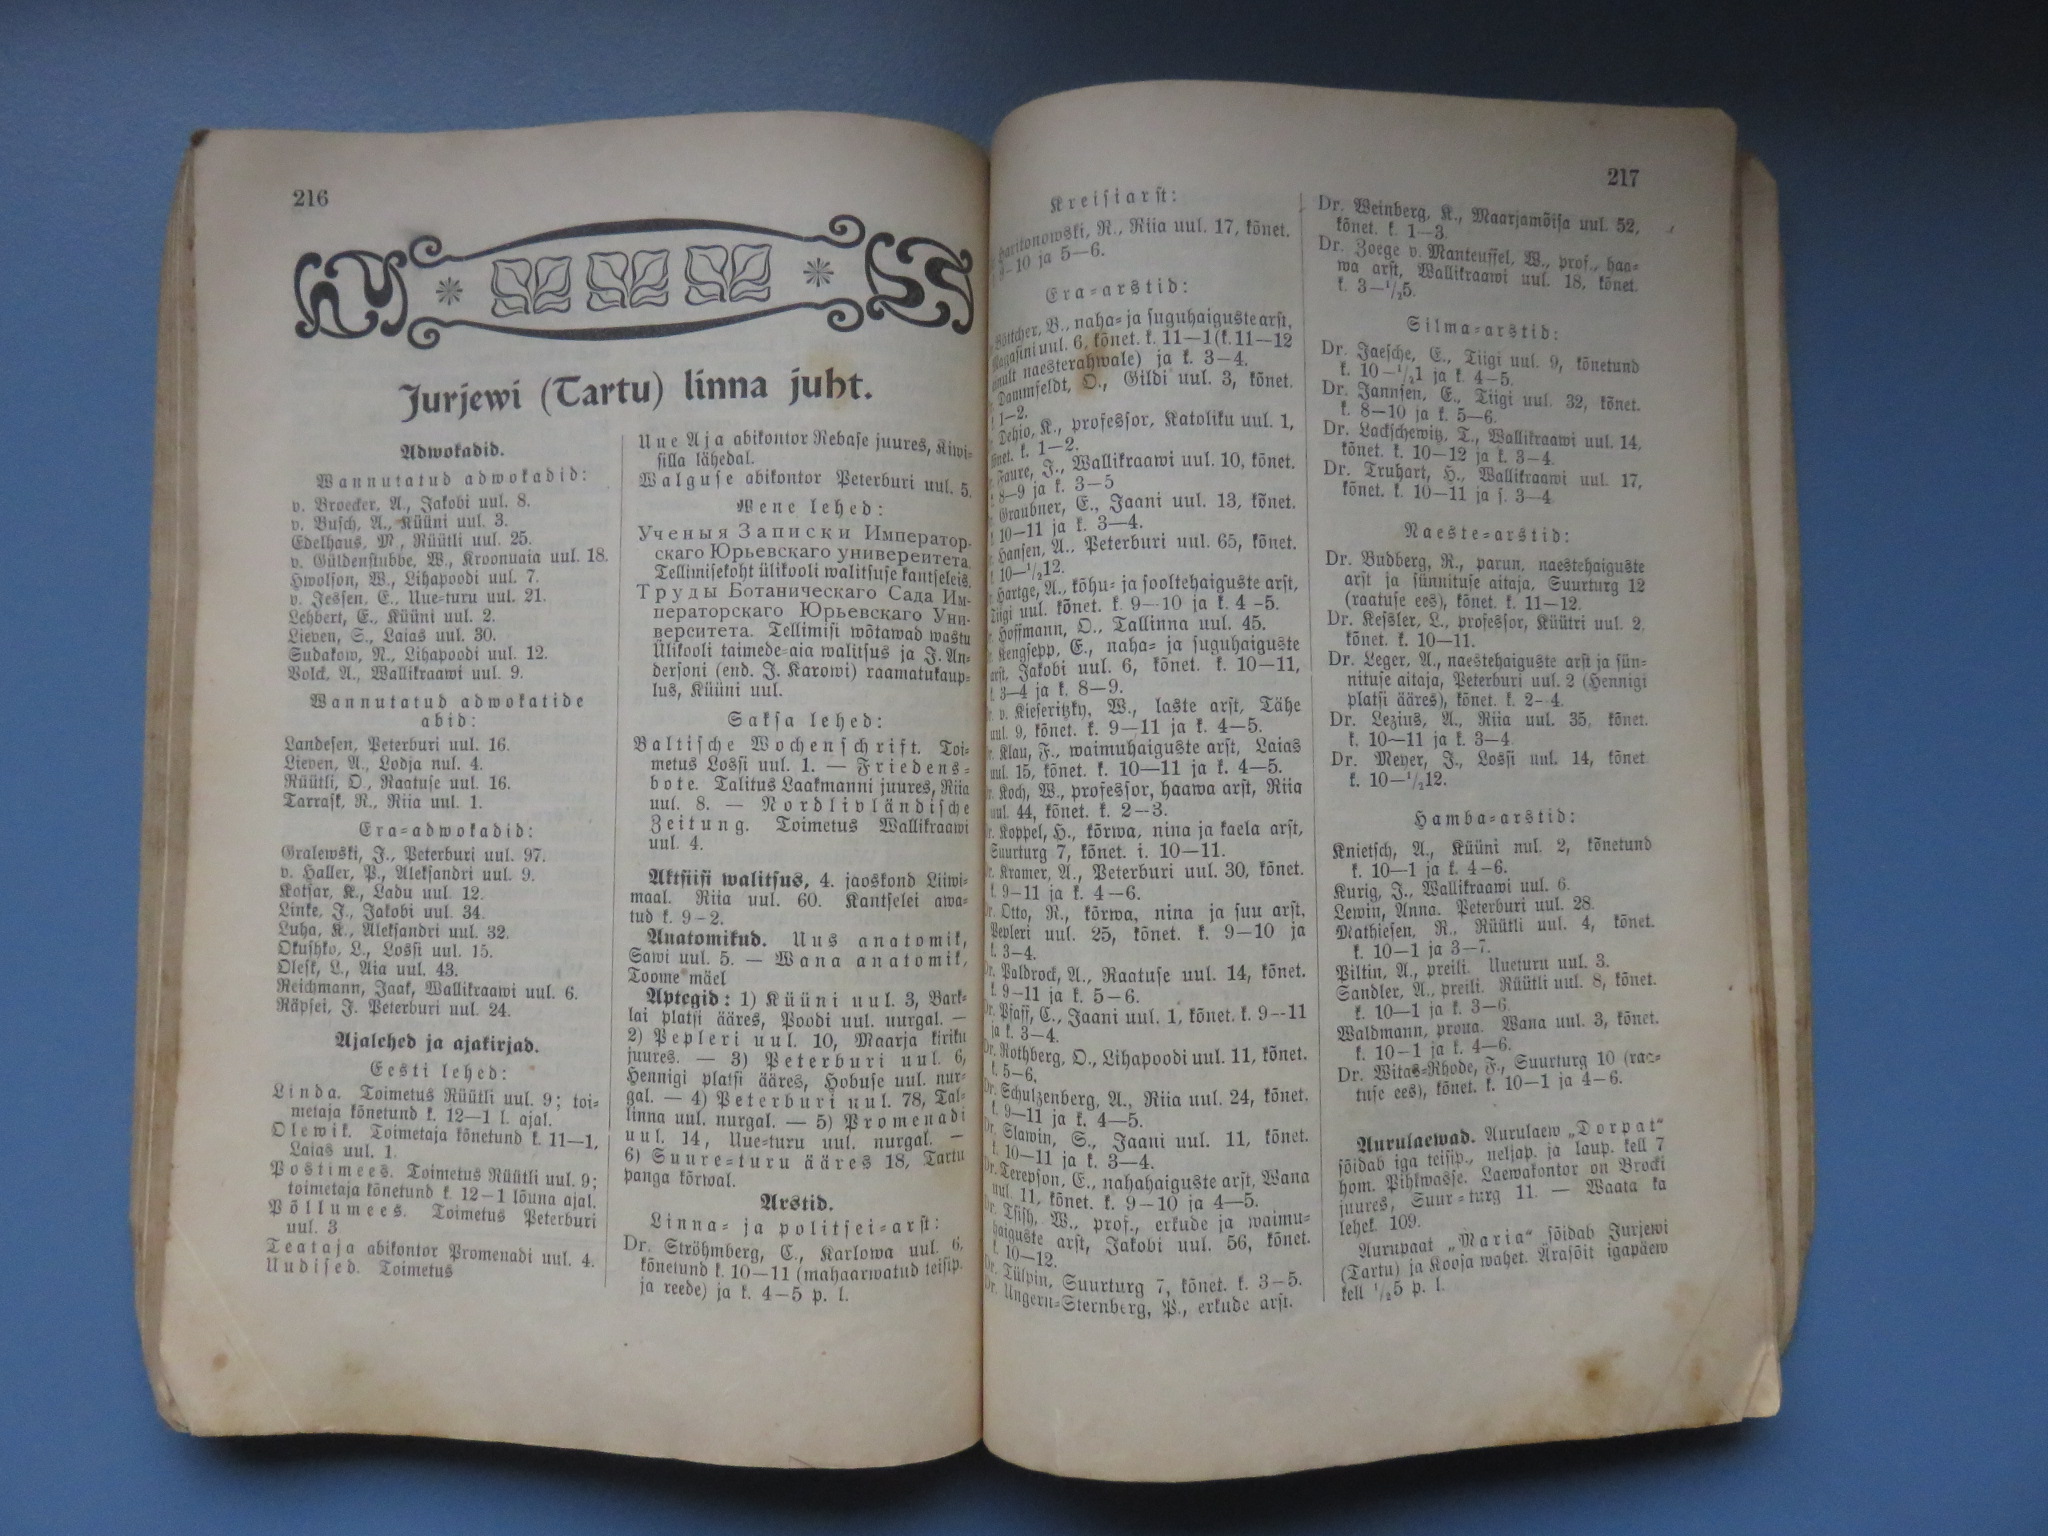 216
Jurjewi (Tartu) linna juht.
Adwokadid.
Wannutatud adwokadid:
v. Broecker, A., Jakobi uul. 8.
v. Busch, A., Küüni uul. 3.
Edelhaus, M., Rüütli uul. 25.
v. Güldenstubbe, W., Kroonuaia uul. 18.
Hwolson, W., Lihapoodi uul. 7.
v. Jessen, E., Uue-turu uul. 21.
Lehbert, E., Küüni uul. 2.
Lieven, S., Laias uul. 30.
Sudakow, N., Lihapoodi uul. 12.
Volck, A., Wallikraawi uul. 9.
Wannutatud adwokatide
abid:
Landesen, Peterburi uul. 16.
Lieven, A., Lodja nul. 4.
Rüütli, O., Raatuse uul. 16.
Tarrask, R., Riia uul. 1.
Era-adwokadid:
Gralewski, J., Peterburi uul. 97.
v. Haller, P., Aleksandri uul. 9.
Kotsar, K., Ladu uul. 12.
Linke, J., Jakobi uul. 34.
Luha, K., Aleksandri uul. 32.
Okushko, L., Lossi uul. 15.
Olesk, L., Aia uul. 43.
Reichmann, Jaak, Wallikraawi uul. 6.
Räpsei, J. Peterburi uul. 24.
Ajalehed ja ajakirjad.
Eesti lehed:
Linda. Toimetus Rüütli uul. 9; toi-
metaja kõnetund k. 12—1 l. ajal.
Olewik. Toimetaja kõnetund k. 11—1,
Laias uul. 1.
Postimees. Toimetus Rüütli uul. 9;
toimetaja kõnetund k. 12—1 lõuna ajal.
Põllumees. Toimetus Peterburi
uul. 3
Teataja abikontor Promenadi uul. 4.
Uudised. Toimetus
Uue Aja abikontor Rebase juures, Kiwi-
silla lähedal.
Walguse abikontor Peterburi uul. 5.
Wene lehed:
Ученыя Записки Император-
скаго Юрьевскаго универеитета.
Tellimisekoht ülikooli walitsuse kantseleis.
Труды Ботаническаго Сада Им-
ператорскаго Юрьевскаго Уни-
верситета. Tellimisi wõtawad wastu
Ülikooli taimede-aia walitsus ja J. An-
dersoni (end. J. Karowi) raamatukaup-
lus, Küüni uul.
Saksa lehed:
Baltische Wochenschrift. Toi-
metus Lossi uul. 1. — Friedens-
bote. Talitus Laakmanni juures, Riia
uul. 8. — Nordlivländische
Zeitung. Toimetus Wallikraawi
uul. 4.
Aktsiisi walitsus, 4. jaoskond Liiwi-
maal. Riia uul. 60. Kantselei awa-
tud k. 9-2.
Anatomikud. Uus anatomik,
Sawi uul. 5. — Wana anatomik,
Toome mäel
Aptegid: 1) Küüni uul. 3, Bark-
lai platsi ääres, Poodi uul. nurgal. —
2) Pepleri uul. 10, Maarja kiriku
juures. — 3) Peterburi uul. 6,
Hennigi platsi ääres, Hobuse uul. nur-
gal. — 4) Peterburi uul. 78, Tal-
linna uul. nurgal. — 5) Promenadi
uul. 14, Uue-turu uul. nurgal. —
6) Suure-turu ääres 18, Tartu
panga kõrwal.
Arstid.
Linna- ja politsei-arst:
Dr. Ströhmberg, C., Karlowa uul. 6,
kõnetund k. 10—11 (mahaarwatud teisip.
ja reede) ja k. 4—5 p. l.
217
Kreisiarst:
Haritonowski, R., Riia uul. 17, kõnet.
9—10 ja 5—6.
Era-arstid:
Böttcher, B., naha- ja suguhaiguste arst,
Magasini uul. 6, kõnet. k. 11—1 (k. 11—12
ainult naesterahwale) ja k. 3—4.
Daumfeldt, O., Gildi uul. 3, kõnet.
1—2.
Dehio, K., professor, Katoliku uul. 1,
kõnet. k. 1—2.
Faure, J., Wallikraawi uul. 10, kõnet.
8—9 ja k. 3—5
Graubner, E., Jaani uul. 13, kõnet.
10—11 ja k. 3—4.
Hansen, A., Peterburi uul. 65, kõnet.
10—1/212.
Hartge, A., kõhu- ja sooltehaiguste arst,
Tiigi uul. kõnet. k. 9—10 ja k. 4-5.
Hoffmann, O., Tallinna uul. 45.
Kengsepp, E., naha- ja suguhaiguste
arst, Jakobi uul. 6, kõnet. k. 10—11,
k. 3—4 ja k. 8—9.
v. Kieseritzky, W., laste arst, Tähe
uul. 9, kõnet. k. 9—11 ja k. 4—5.
Klau, F., waimuhaiguste arst, Laias
uul. 15, kõnet. k. 10—11 ja k. 4—5.
Koch, W., professor, haawa arst, Riia
uul. 44, kõnet. k. 2—3.
Koppel, H., kõrwa, nina ja kaela arst,
Suurturg 7, kõnet. i. 10—11.
Kramer, A., Peterburi uul. 30, kõnet.
k. 9—11 ja k. 4—6.
Dr. Otto, R., kõrwa, nina ja suu arst,
Pepleri uul. 25, kõnet. k. 9—10 ja
k. 3—4.
Dr. Paldrock, A., Raatuse uul. 14, kõnet.
k. 9—11 ja k. 5—6.
Dr. Pfaff, C., Jaani uul. 1, kõnet. k. 9—11
ja k. 3—4.
Dr. Rothberg, O., Lihapoodi uul. 11, kõnet.
k. 5—6.
Dr. Schulzenberg, A., Riia uul. 24, kõnet.
k. 9—11 ja k. 4—5.
Dr. Slawin, S., Jaani uul. 11, kõnet.
k. 10—11 ja k. 3—4.
Dr. Terepson, E., nahahaiguste arst, Wana
uul. 11, kõnet. k. 9—10 ja 4—5.
Dr. Tsish, W., prof., erkude ja waimu-
haiguste arst, Jakobi uul. 56, kõnet.
k. 10—12.
Dr. Tülpin, Suurturg 7, kõnet. k. 3—5.
Dr. Ungern-Sternberg, P., erkude arst.
Dr. Weinberg, K., Maarjamõisa uul. 52,
kõnet. k. 1—3.
Dr. Zoege v. Manteuffel, W., prof., haa-
wa arst, Wallikraawi uul. 18, kõnet.
k. 3—1/25.
Silma-arstid:
Dr. Jaesche, E., Tiigi uul. 9, kõnetund
k. 10—1/21 ja k. 4—5.
Dr. Jannsen, E., Tiigi uul. 32, kõnet.
k. 8—10 ja k. 5—6.
Dr. Lackschewitz, T., Wallikraawi uul. 14,
kõnet. k. 10—12 ja k. 3—4.
Dr. Truhart, H., Wallikraawi uul. 17,
kõnet. k. 10—11 ja s. 3—4.
Naeste-arstid:
Dr. Budberg, R., parun, naestehaiguste
arst ja sünnituse aitaja, Suurturg 12
(raatuse ees), kõnet. k. 11—12.
Dr. Kessler, L., professor, Küütri uul. 2,
kõnet. k. 10—11.
Dr. Leger, A., naestehaiguste arst ja sün-
nituse aitaja, Peterburi uul. 2 (Hennigi
platsi ääres), kõnet. k. 2-4.
Dr. Lezius, A., Riia uul. 35, kõnet.
k. 10—11 ja k. 3—4
Dr. Meyer, J., Lossi uul. 14, kõnet
k. 10—1/212.
Hamba-arstid:
Knietsch, A., Küüni nul. 2, kõnetund
k. 10—1 ja k. 4-6.
Kurig, J., Wallikraawi uul. 6.
Lewin, Anna. Peterburi uul. 28.
Mathiesen, R., Rüütli uul. 4, kõnet.
k. 10—1 ja 3—7.
Piltin, A., preili. Uueturu uul. 3.
Sandler, A., preili. Rüütli uul. 8, kõnet.
k. 10—1 ja k. 3—6.
Waldmann, proua. Wana uul. 3, kõnet.
k. 10-1 ja k. 4—6.
Dr. Witas-Rhode, F., Suurturg 10 (raa-
tuse ees), kõnet. k. 10—1 ja 4—6.
Aurulaewad. Aurulaew „Dorpat“
sõidab iga teisip., neljap. ja laup. kell 7
hom. Pihkwasse. Laewakontor on Brocki
juures, Suur-turg 11. — Waata ka
lehek. 109.
Aurupaat „Maria“ sõidab Jurjewi
(Tartu) ja Koosa wahet. Ärasõit igapäew
kell 1/25 p. l.